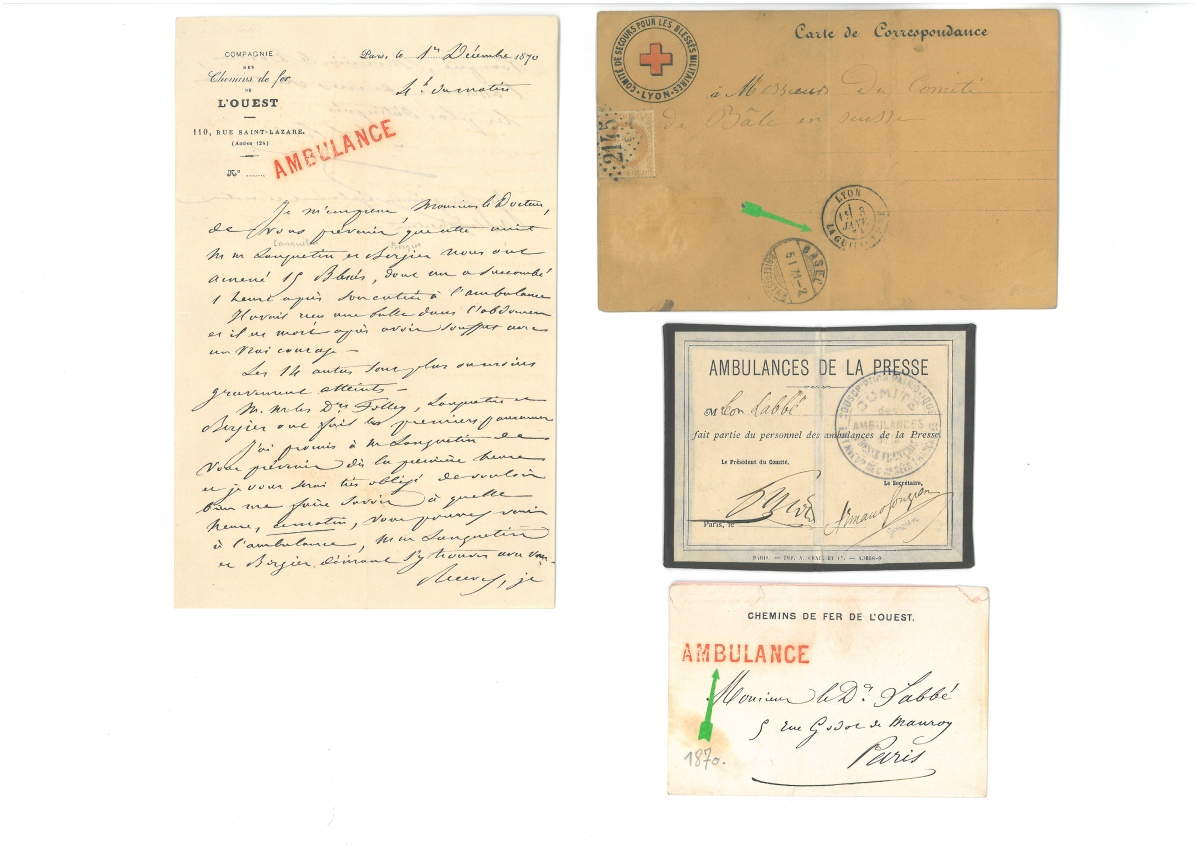 COMPAGNIE
DES
Chemins de fer
DE
L'OUEST
110, RUE SAINT-LAZARE.
(Ancien 124)
N°
Paris, le 1er Décembre 1870
4 h. du matin
AMBULANCE
Je m'empresse Monsieur le Docteur,
de vous prévenir que cette nuit
Languetin Bergier
M. Mr Languetin et Bergier nous ont
amené 15 Blessés, dont un a succombé
1 heure après son entrée à l'ambulance
Il avait reçu une balle dans l'abdomen
et il est mort après avoir souffert avec
un vrai courage –
Les 14 autres sont plus ou moins
gravement atteints –
M. Mr les Drs Folley, Languetin et
Bergier ont fait les premiers pansements
J'ai promis à Mr Languetin de
vous prévenir dès la première heure
et je vous serai très obligé de vouloir
bien me faire savoir à quelle
heure, ce matin, vous pouvez venir
à l'ambulance, M. Mr Languetin
et Bergier désirant s'y trouver avec vous –
Recevez, je
COMITÉ DE SECOURS POUR LES BLESSÉS MILITAIRES
LYON
Carte de Correspondance
à Messieurs du Comité
de Bâle en suisse
2145
LYON
3
JANV.
71
LA GUILLOTIÈRE
BASEL
5 I 71-2
BRIEFEXPED
AMBULANCES DE LA PRESSE
M Léon Labbé
fait partie du personnel des ambulances de la Presse.
Le Président du Comité.
Le Secrétaire,
Paris, le
SOUSCRIPTION PATRIOTIQUE
COMITÉ
des
AMBULANCES
PRESSE FRANÇAISE
PARIS. — IMP. A. CHAIX ET Cie.
CHEMINS DE FER DE L'OUEST.
AMBULANCE
Monsieur le Dr Labbé
5 rue Godot de Mauroy
Paris
1870.